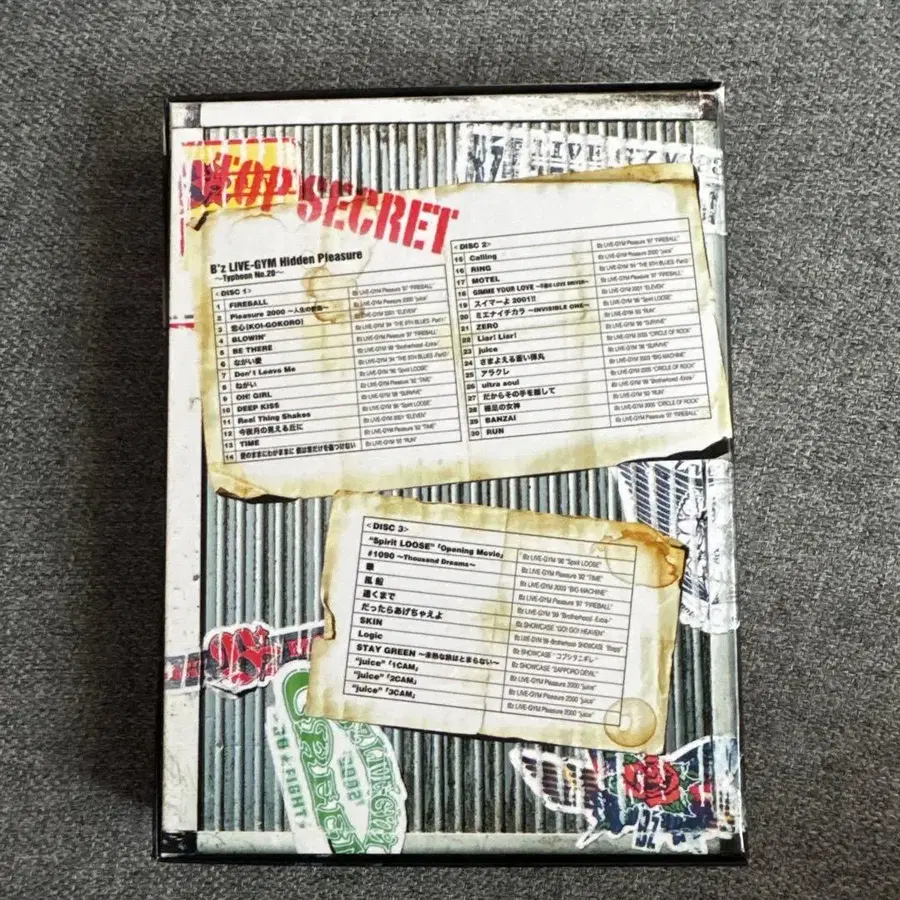 TOP SECRET
LIVE-GYM
B'z LIVE-GYM Hidden Pleasure
～Typhoon No.20～
＜DISC 1＞
1 FIREBALL B'z LIVE-GYM Pleasure '97 "FIREBALL"
2 Pleasure 2000 ～人生の快楽～ B'z LIVE-GYM Pleasure 2000 "juice"
3 恋心(KOI-GOKORO) B'z LIVE-GYM 2001 "ELEVEN"
4 BLOWIN' B'z LIVE-GYM '94 "THE 9TH BLUES -Part
5 BE THERE B'z LIVE-GYM Pleasure '97 "FIREBALL"
6 ながい愛 B'z LIVE-GYM '99 "Brotherhood -Extra-"
7 Don't Leave Me B'z LIVE-GYM '94 "THE 9TH BLUES -Part
8 ねがい B'z LIVE-GYM '96 "Spirit LOOSE"
9 OH! GIRL B'z LIVE-GYM Pleasure '92 "TIME"
10 DEEP KISS B'z LIVE-GYM '98 "SURVIVE"
11 Real Thing Shakes B'z LIVE-GYM '96 "Spirit LOOSE"
12 今夜月の見える丘に B'z LIVE-GYM 2001 "ELEVEN"
13 TIME B'z LIVE-GYM Pleasure '92 "TIME"
14 愛のままにわがままに 僕は君だけを傷つけない B'z LIVE-GYM '93 "RUN"
＜DISC 2＞
15 Calling B'z LIVE-GYM Pleasure '97 "FIREBALL"
16 RING B'z LIVE-GYM Pleasure 2000 "juice"
17 MOTEL B'z LIVE-GYM '94 "THE 9TH BLUES -Part
18 GIMME YOUR LOVE －不屈のLOVE DRIVER－ B'z LIVE-GYM Pleasure '97 "FIREBALL"
19 スイマーよ2001!! B'z LIVE-GYM 2001 "ELEVEN"
20 ミエナイチカラ ～INVISIBLE ONE～ B'z LIVE-GYM '96 "Spirit LOOSE"
21 ZERO B'z LIVE-GYM '93 "RUN"
22 Liar! Liar! B'z LIVE-GYM '98 "SURVIVE"
23 juice B'z LIVE-GYM 2005 "CIRCLE OF ROCK"
24 さまよえる蒼い弾丸 B'z LIVE-GYM '98 "SURVIVE"
25 アラクレ B'z LIVE-GYM 2003 "BIG MACHINE"
26 ultra soul B'z LIVE-GYM 2005 "CIRCLE OF ROCK"
27 だからその手を離して B'z LIVE-GYM '99 "Brotherhood -Extra-"
28 裸足の女神 B'z LIVE-GYM '93 "RUN"
29 BANZAI B'z LIVE-GYM 2005 "CIRCLE OF ROCK"
30 RUN B'z LIVE-GYM Pleasure '97 "FIREBALL"
＜DISC 3＞
"Spirit LOOSE"「Opening Movie」 B'z LIVE-GYM '96 "Spirit LOOSE"
#1090 ～Thousand Dreams～ B'z LIVE-GYM Pleasure '92 "TIME"
B'z LIVE-GYM 2003 "BIG MACHINE"
風船 B'z LIVE-GYM Pleasure '97 "FIREBALL"
遠くまで B'z LIVE-GYM '99 "Brotherhood -Extra-"
だったらあげちゃえよ B'z SHOWCASE "GO! GO! HEAVEN"
SKIN B'z LIVE-GYM '99 -Brotherhood- SHOWCASE
Logic B'z SHOWCASE "コブシヲニギレ"
STAY GREEN ～未熟な旅はとまらない～ B'z SHOWCASE "SAPPORO DEVIL"
"juice"「1CAM」 B'z LIVE-GYM Pleasure 2000 "juice"
"juice"「2CAM」 B'z LIVE-GYM Pleasure 2000 "juice"
"juice"「3CAM」 B'z LIVE-GYM Pleasure 2000 "juice"
B'z